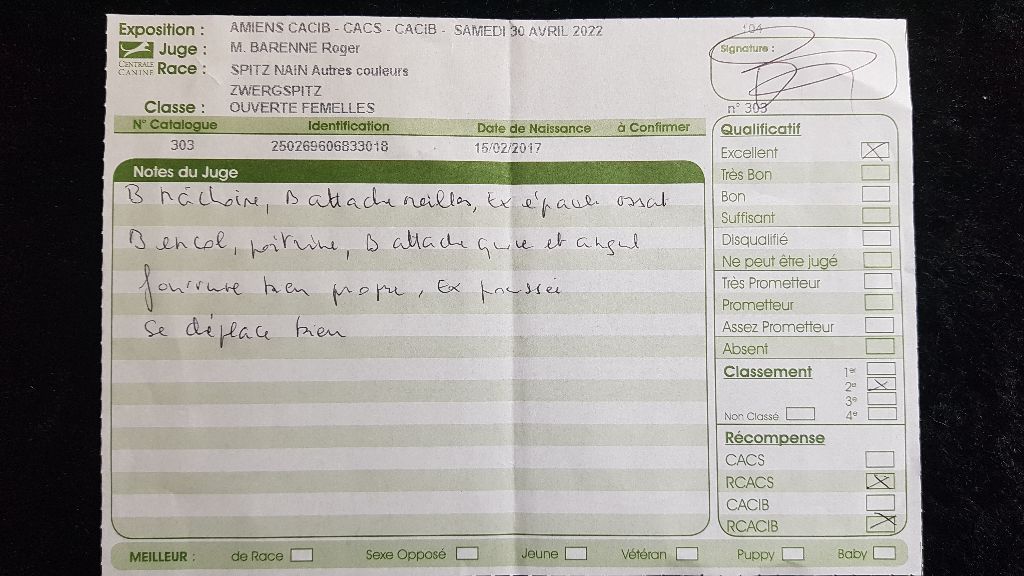 Exposition : AMIENS CACIB - CACS - CACIB - SAMEDI 30 AVRIL 2022
104
CENTRALE CANINE
Juge : M. BARENNE Roger
Signature :
Race : SPITZ NAIN Autres couleurs
ZWERGSPITZ
Classe : OUVERTE FEMELLES
n° 303
N° Catalogue Identification Date de Naissance à Confirmer
303 250269606833018 15/02/2017
Notes du Juge
B mâchoire, B attache oreilles, Ex épaule ossat
B encol, poitrine, B attache queue et angul
fourrure bien propre, Ex poussée
se déplace bien
Qualificatif
Excellent X
Très Bon
Bon
Suffisant
Disqualifié
Ne peut être jugé
Très Prometteur
Prometteur
Assez Prometteur
Absent
Classement 1er
2e X
3e
Non Classé 4e
Récompense
CACS
RCACS X
CACIB
RCACIB X
MEILLEUR : de Race Sexe Opposé Jeune Vétéran Puppy Baby